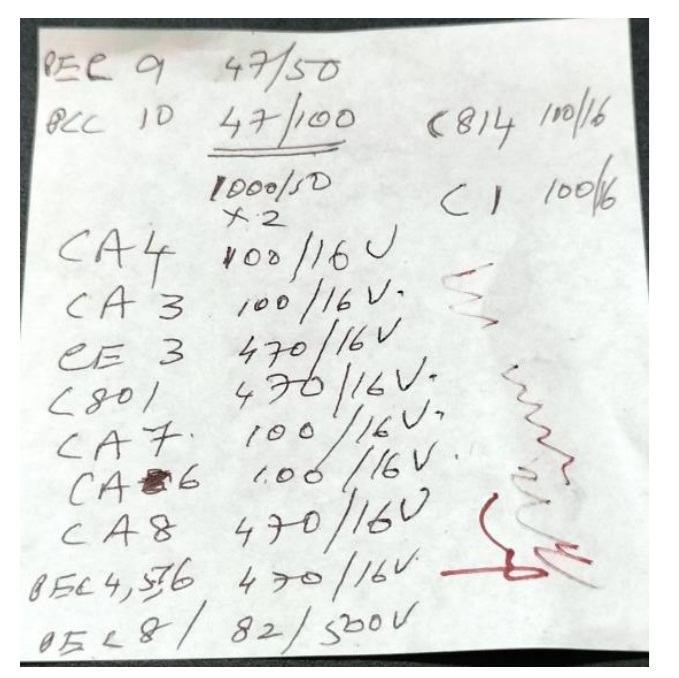 PEC 9 47/50
PCC 10 47/100
C814 100/16
1000/50
x 2
C1 100/16
CA4 100/16 V
CA 3 100/16 V.
CE 3 470/16 V
C801 470/16 V.
CA 7. 100/16 V.
CA 6 100/16 V.
CA 8 470/16 V
PEC 4,5,6 470/16 V.
PEC 8/ 82/500V